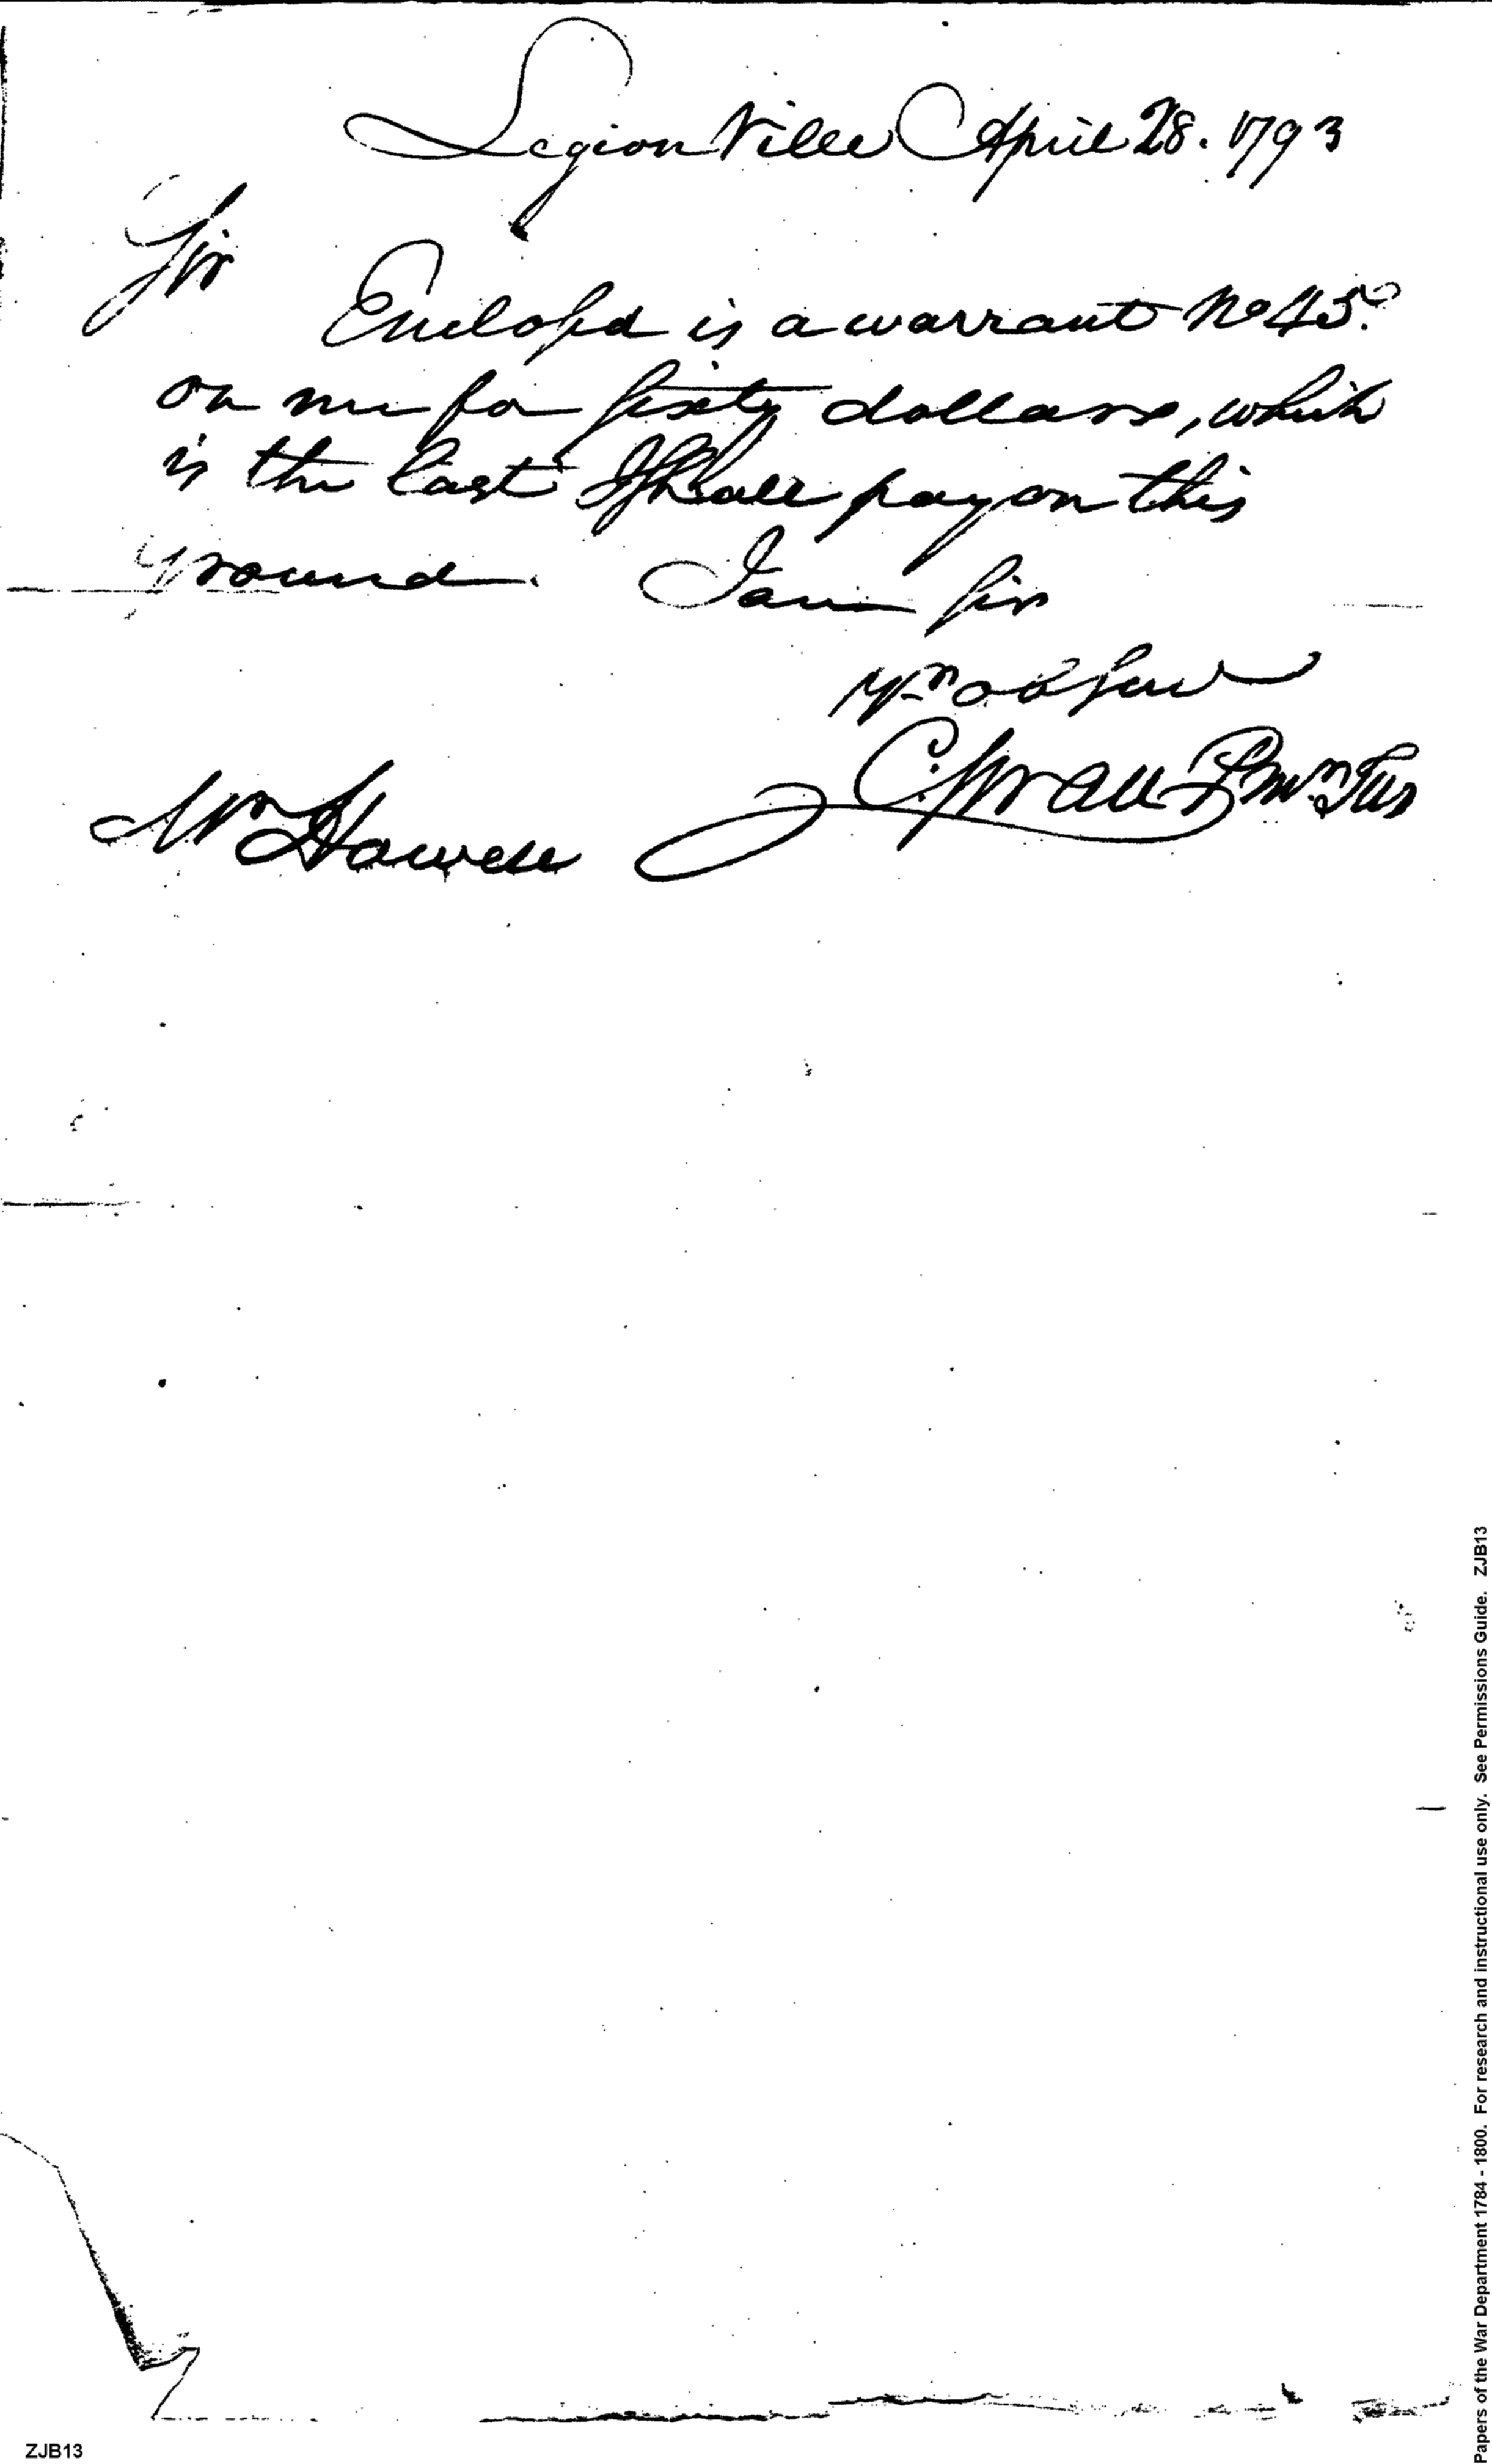 Legion Ville April 28. 1793
Sir
Enclosed is a warrant No 45.
on me for sixty dollars, which
is the last I shall pay on this
ground. I am sir
Yr ob Serv
C. Swan P Mr Trs
Mr Howell
ZJB13
Papers of the War Department 1784 - 1800. For research and instructional use only. See Permissions Guide. ZJB13